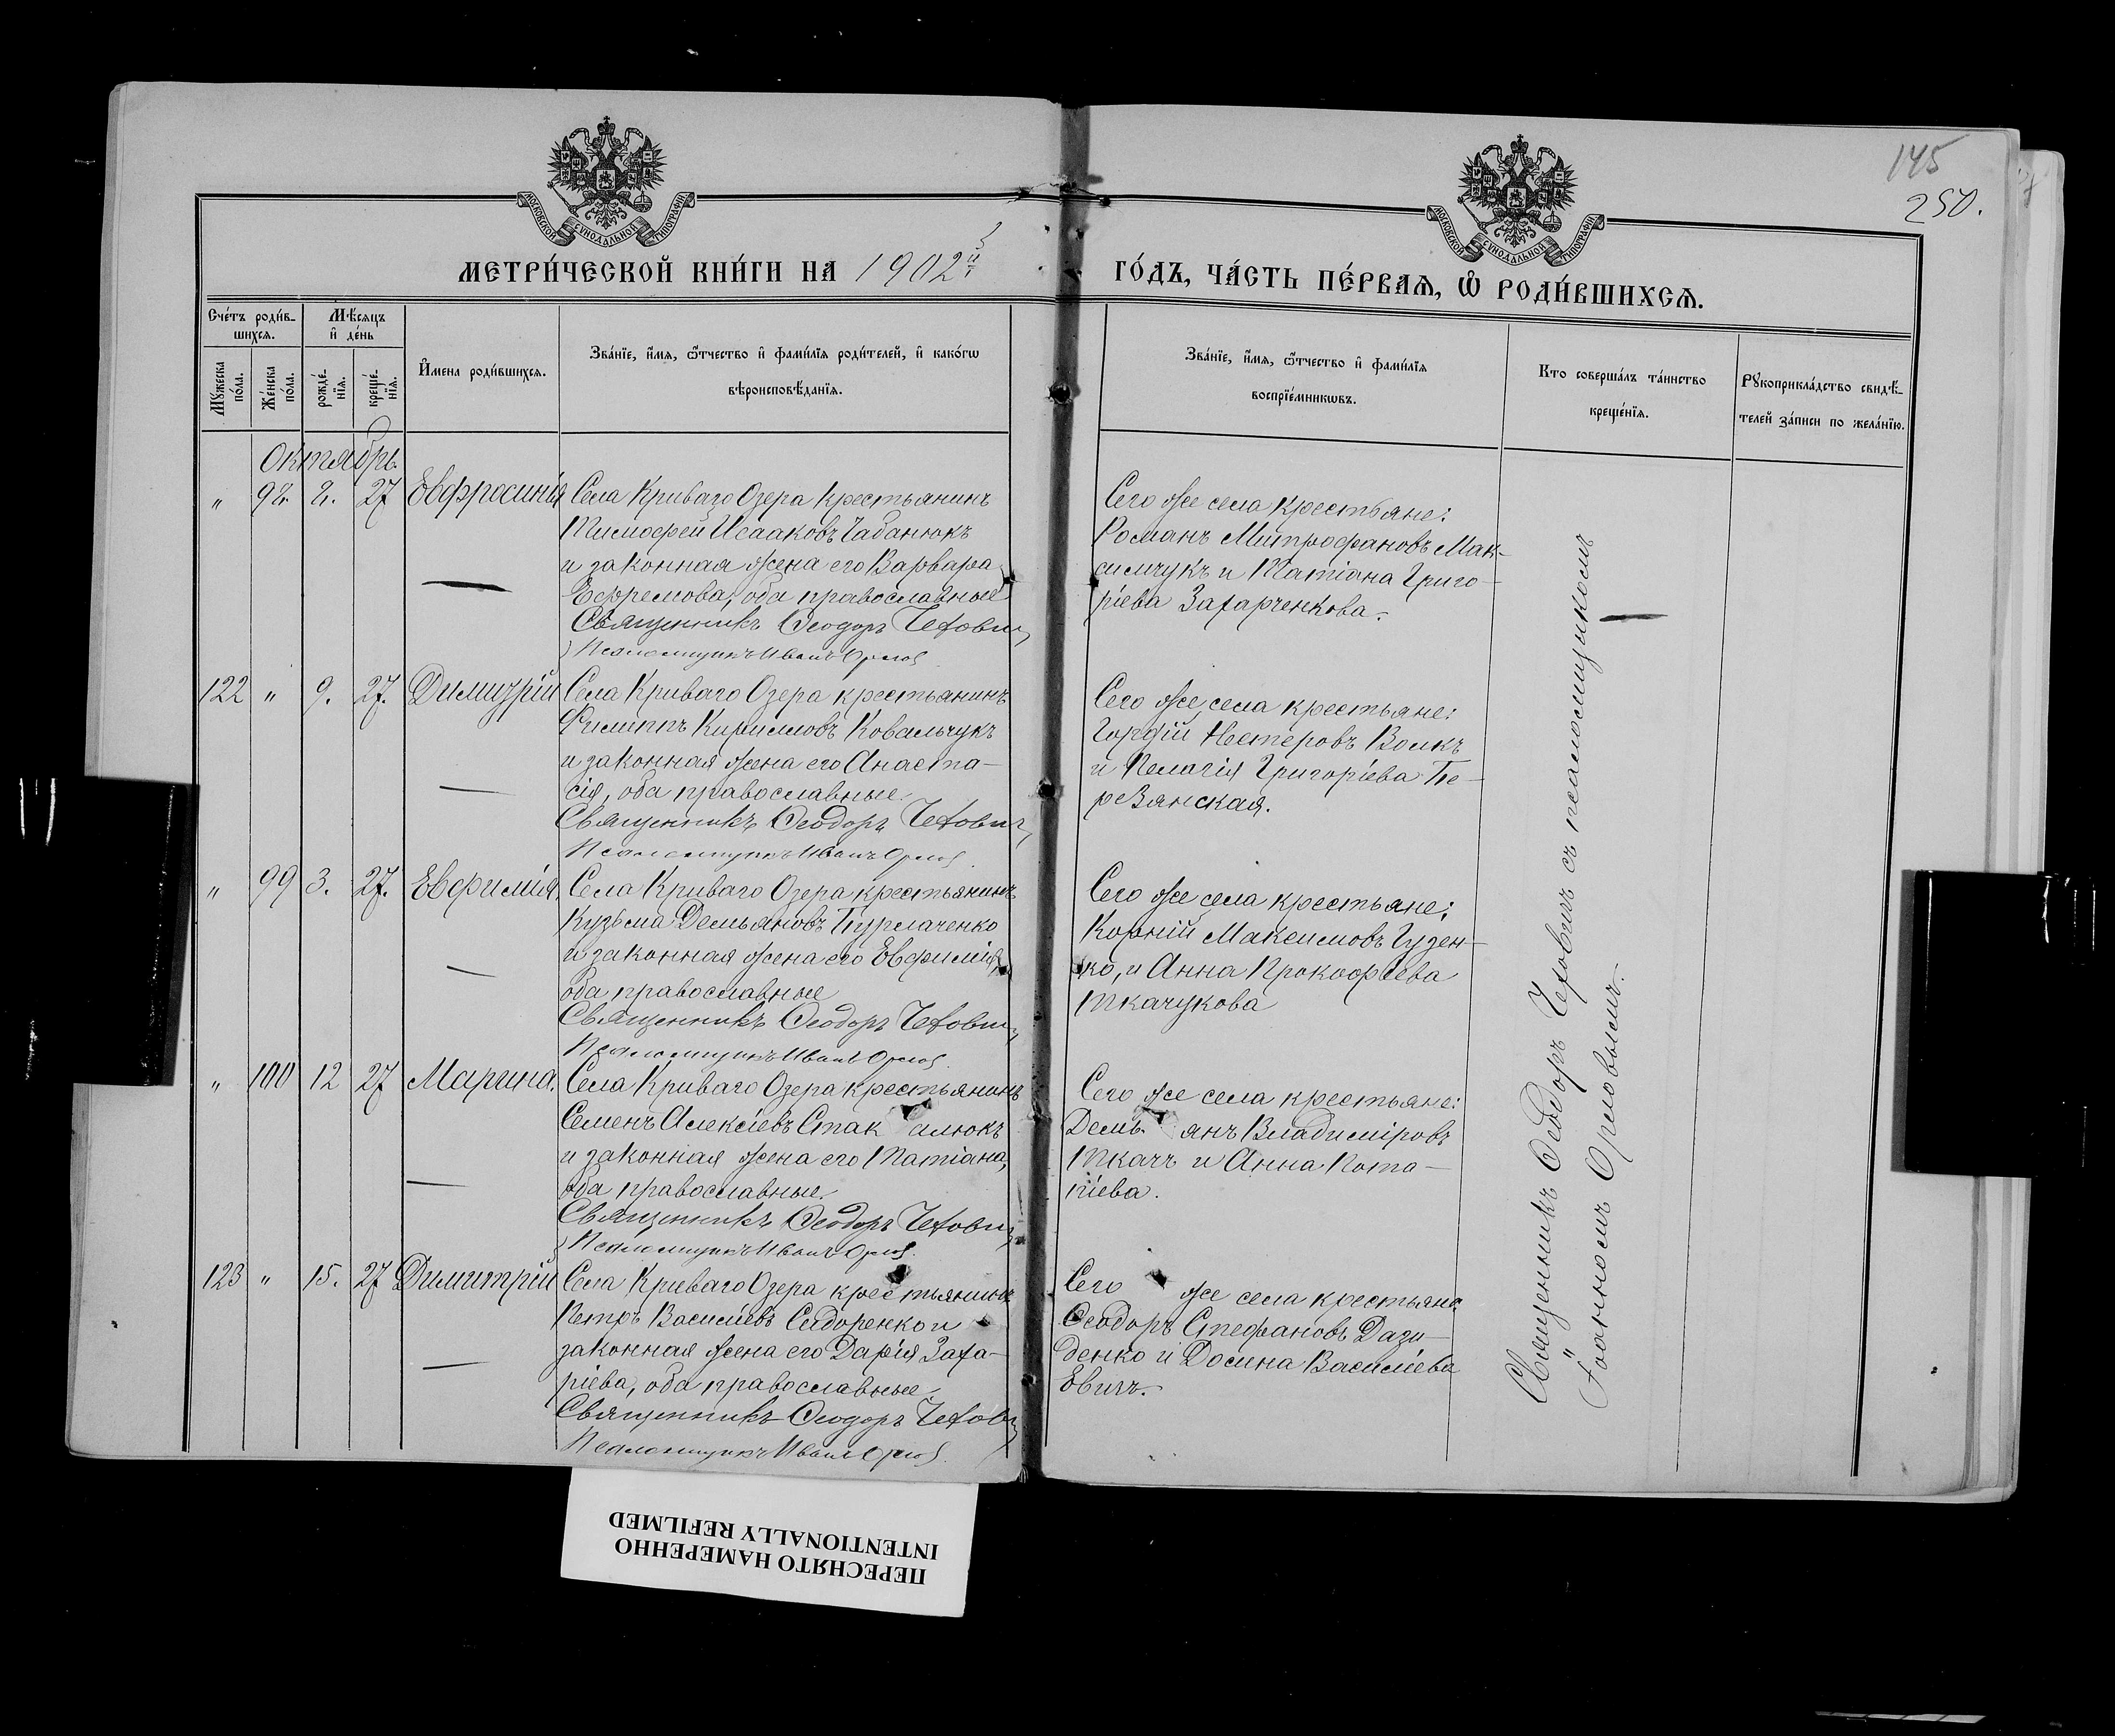 145
250.
МОСКОВСКОЙ СѴНОДАЛЬНОЙ ТИПОГРАФІИ
МОСКОВСКОЙ СѴНОДАЛЬНОЙ ТИПОГРАФІИ
МЕТРИ́ЧЕСКОЙ КНИ́ГИ НА 1902й
ГО́ДЪ, ЧА́СТЬ ПЕ́РВАЯ, Ѡ РОДИ́ВШИХСЯ.
Сче́тъ роди́в-
шихся.
Мѣ́сяцъ
и де́нь
Му́жеска
по́ла.
Же́нска
по́ла.
рожде́-
нія.
креще́-
нія.
И́мена роди́вшихся.
Зва́ніе, и́мя, ѻ́тчество и фами́лія роди́телей, и како́гѡ
вѣроисповѣ́данія.
Зва́ніе, и́мя, ѻ́тчество и фами́лія
воспріе́мникѡвъ.
Кто соверша́лъ та́инство
креще́нія.
Рукоприкла́дство свидѣ́-
телей за́писи по жела́нію.
Октябрь
„ 98. 2. 27 Евфросинія Села Криваго Озера крестьянинъ
Тимофей Исааковъ Чабанюкъ
и законная жена его Варвара
Ефремова, оба православные
Священникъ Ѳеодоръ Чехович
Псаломщикъ Иванъ Орлов
Сего же села крестьяне:
Романъ Митрофановъ Мак-
симчукъ и Татіана Григо-
ріева Захарченкова.
122 „ 9. 27. Димитрій Села Криваго Озера крестьянинъ
Филиппъ Кирилловъ Ковальчукъ
и законная жена его Анаста-
сія, оба православные.
Священникъ Ѳеодоръ Чехович
Псаломщикъ Иванъ Орлов
Сего же села крестьяне:
Гордій Нестеровъ Волкъ
и Пелагія Григоріева Бе-
резянская.
„ 99 3. 27. Евфимія. Села Криваго Озера крестьянинъ
Кузьма Демьяновъ Бурлаченко
и законная жена его Евфимія,
оба православные
Священникъ Ѳеодоръ Чехович
Псаломщикъ Иванъ Орлов
Сего же села крестьяне:
Корній Максимовъ Гузен-
ко, и Анна Прокофіева
Ткачукова
„ 100 12 27 Марина. Села Криваго Озера крестьянинъ
Семенъ Алексіевъ Стак алюкъ
и законная жена его Татіана,
оба православные.
Священникъ Ѳеодоръ Чехович
Псаломщикъ Иванъ Орлов
Сего же села крестьяне:
Демь янъ Владиміровъ
Ткачъ и Анна Пота-
піева.
123 „ 15. 27 Димитрій Села Криваго Озера крестьянинъ
Петръ Василіевъ Сидоренко и
законная жена его Дарія Заха-
ріева, оба православные.
Священникъ Ѳеодоръ Чехович
Псаломщикъ Иванъ Орлов
Сего же села крестьяне
Ѳеодоръ Стефановъ Дази-
денко и Досина Василіева
Евичъ.
Священникъ Ѳеодоръ Чеховичъ съ псаломщикомъ
Іоанномъ Орловымъ.
ПЕРЕСНЯТО НАМЕРЕННО
INTENTIONALLY REFILMED